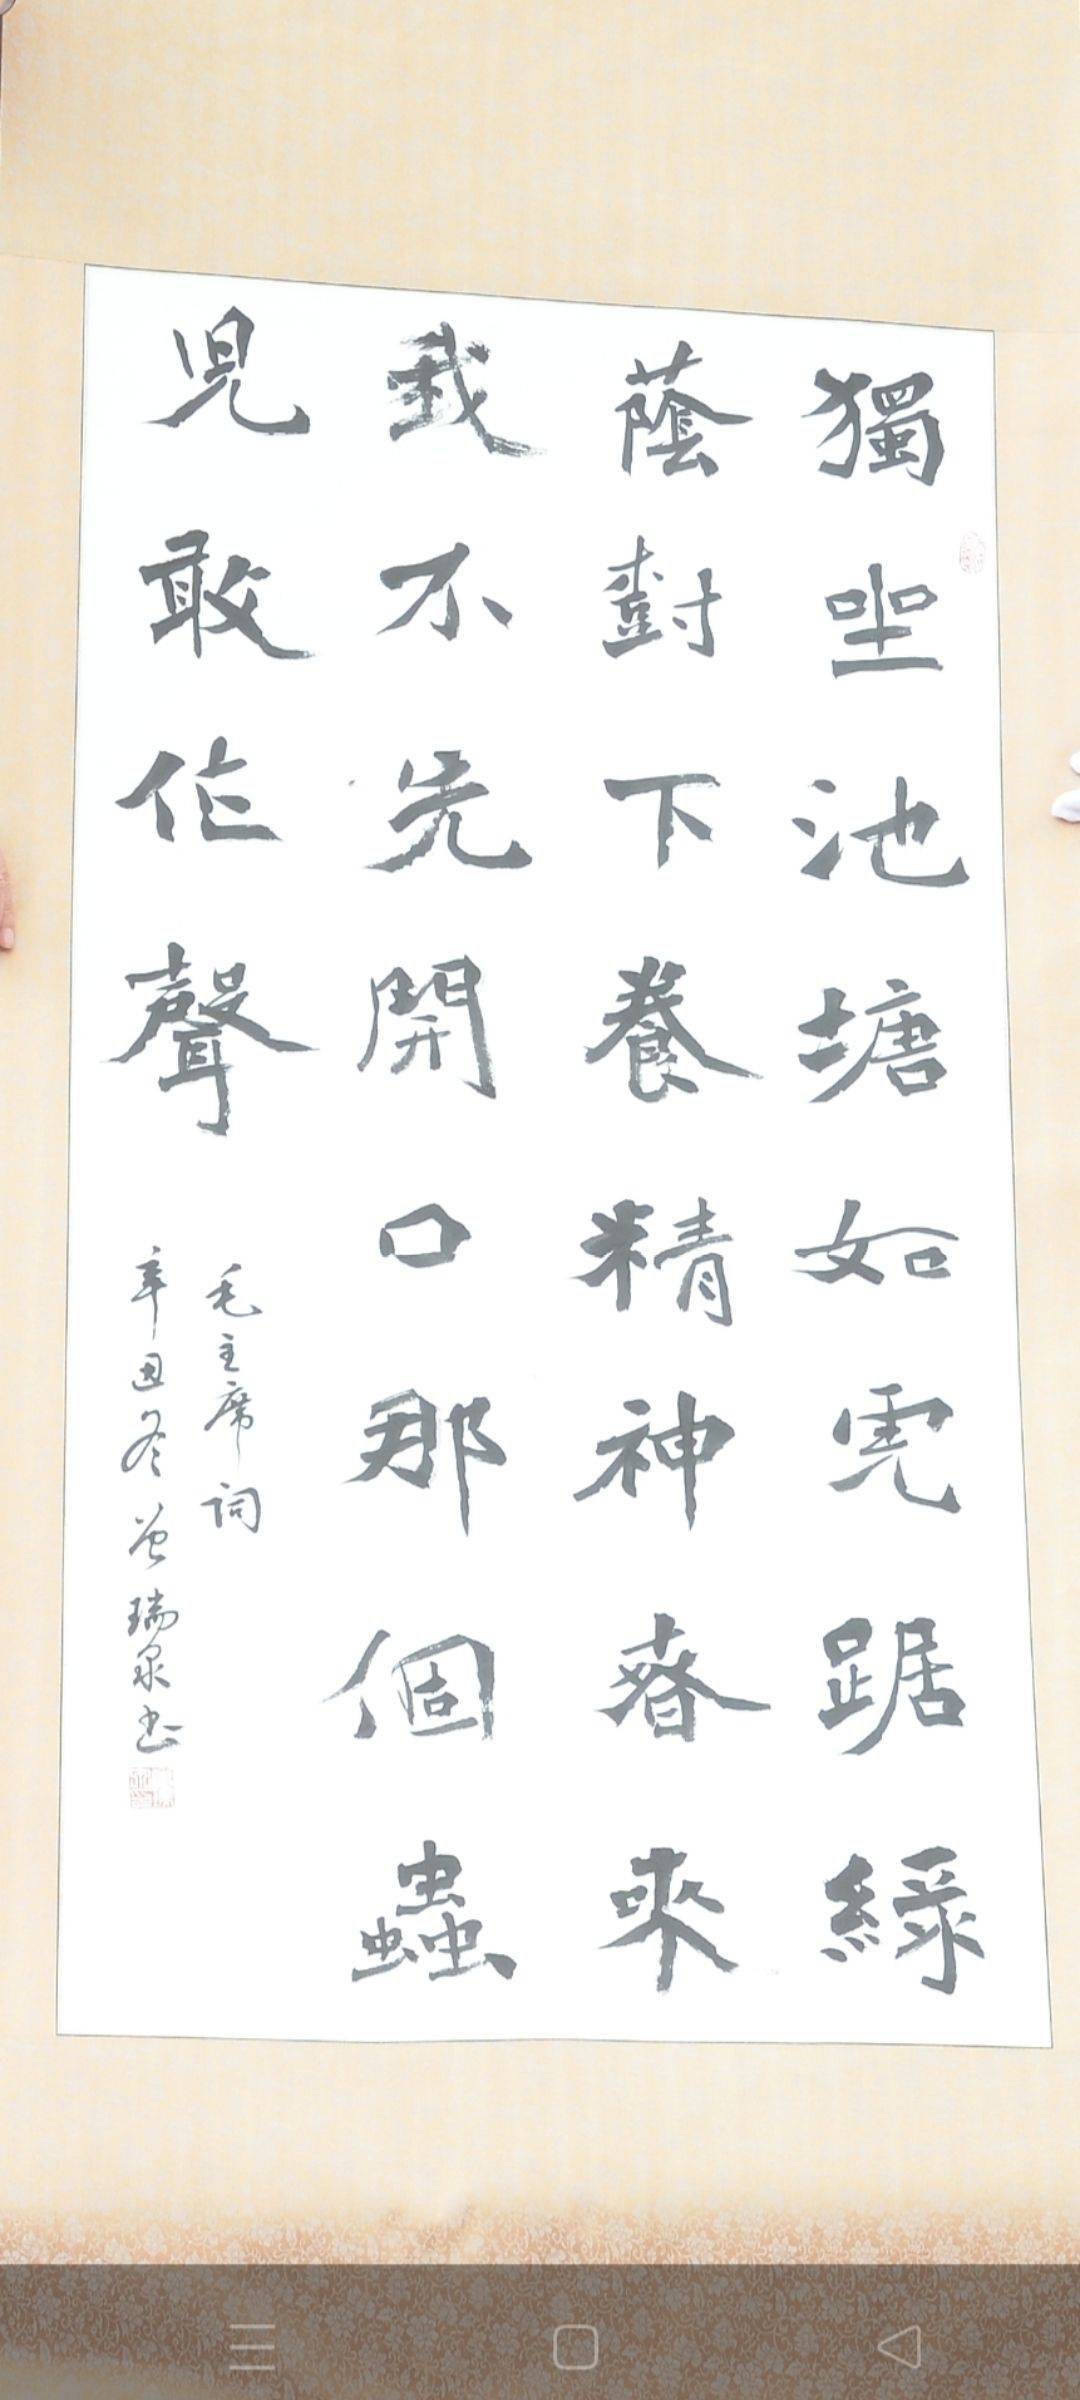 獨坐池塘如虎踞綠
蔭對下養精神春來
我不先開口那個蟲
兒敢作聲
毛主席詞
辛丑冬曾瑞泉書